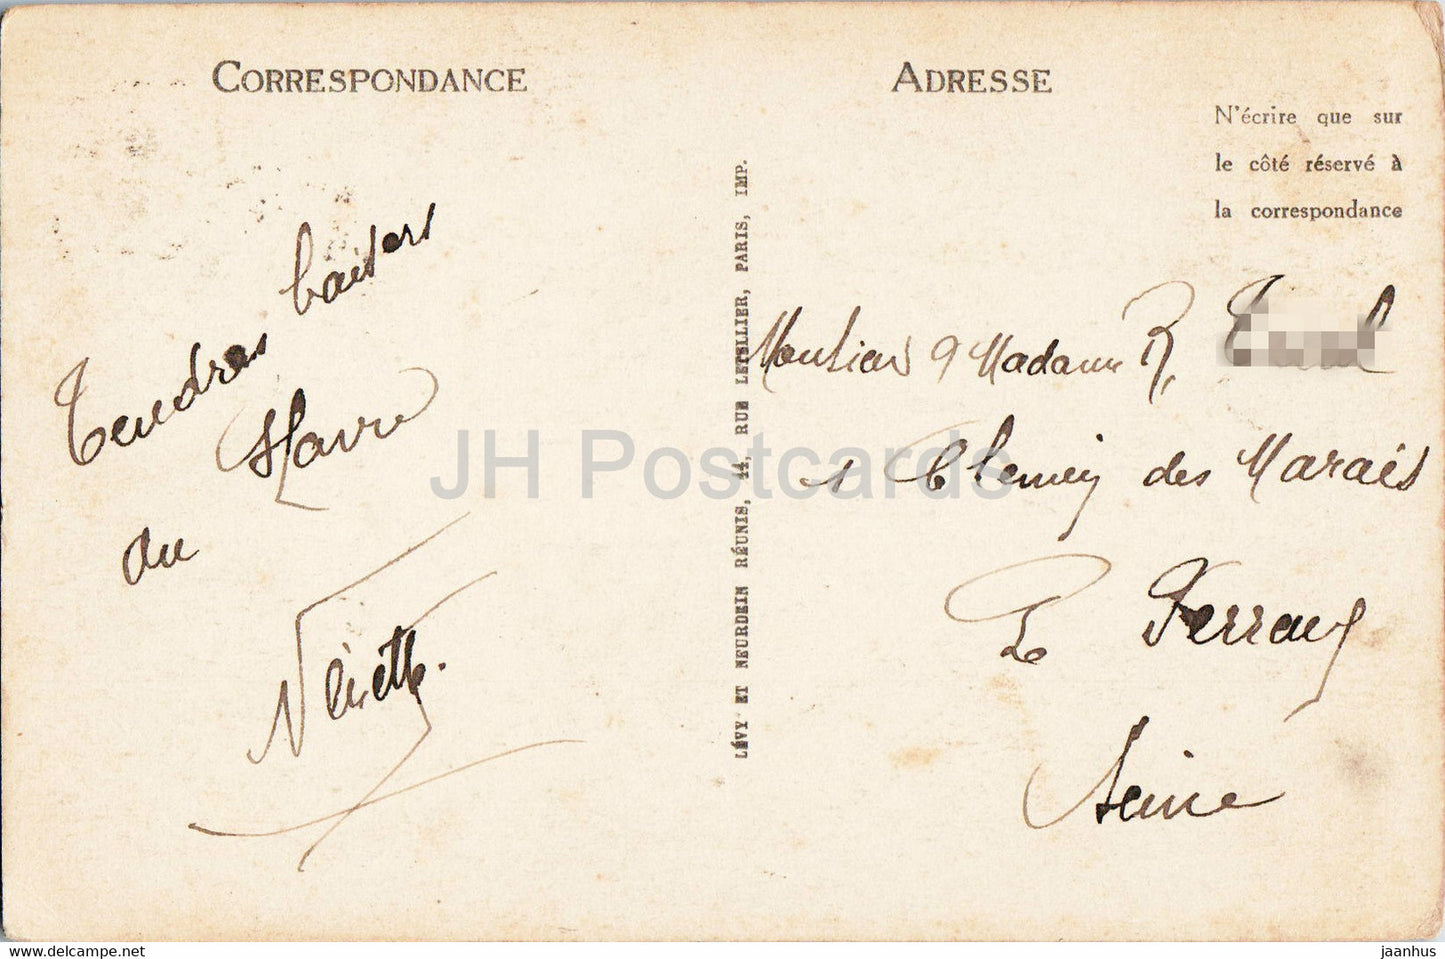 CORRESPONDANCE
Tendres baisers
du Havre
Nénette.
LÉVY ET NEURDEIN RÉUNIS, 44, RUE LETELLIER, PARIS, IMP.
ADRESSE
N'écrire que sur
le côté réservé à
la correspondance
Monsieur & Madame R.
1 Chemin des Marais
Le Perreux
Seine
JH Postcards
www.delcampe.net
jaanhus